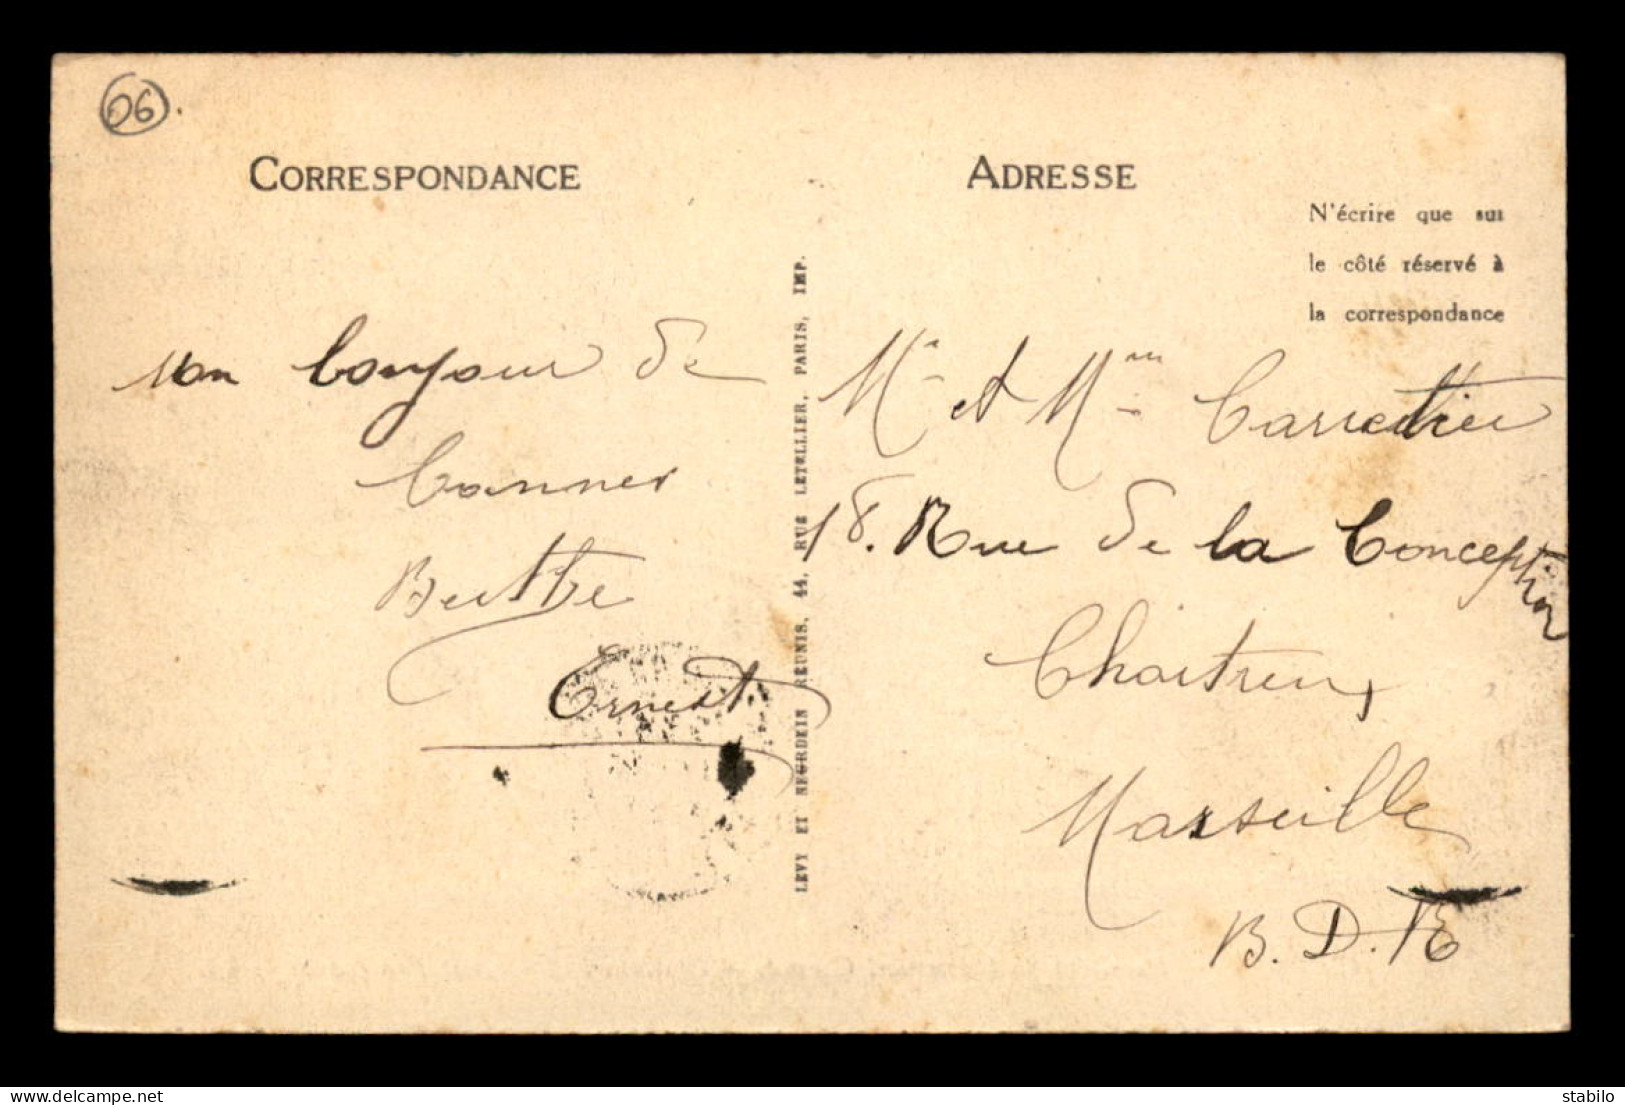 06.
CORRESPONDANCE
Mon bonjour de
Cannes
Berthe
Ernest
LEVY ET NEURDEIN REUNIS, 44, RUE LETELLIER, PARIS, IMP.
ADRESSE
N'écrire que sur
le côté réservé à
la correspondance
Mr et Mme
18. Rue de la Conception
Chartreux
Marseille
B. D. R
delcampe.net
stabilo